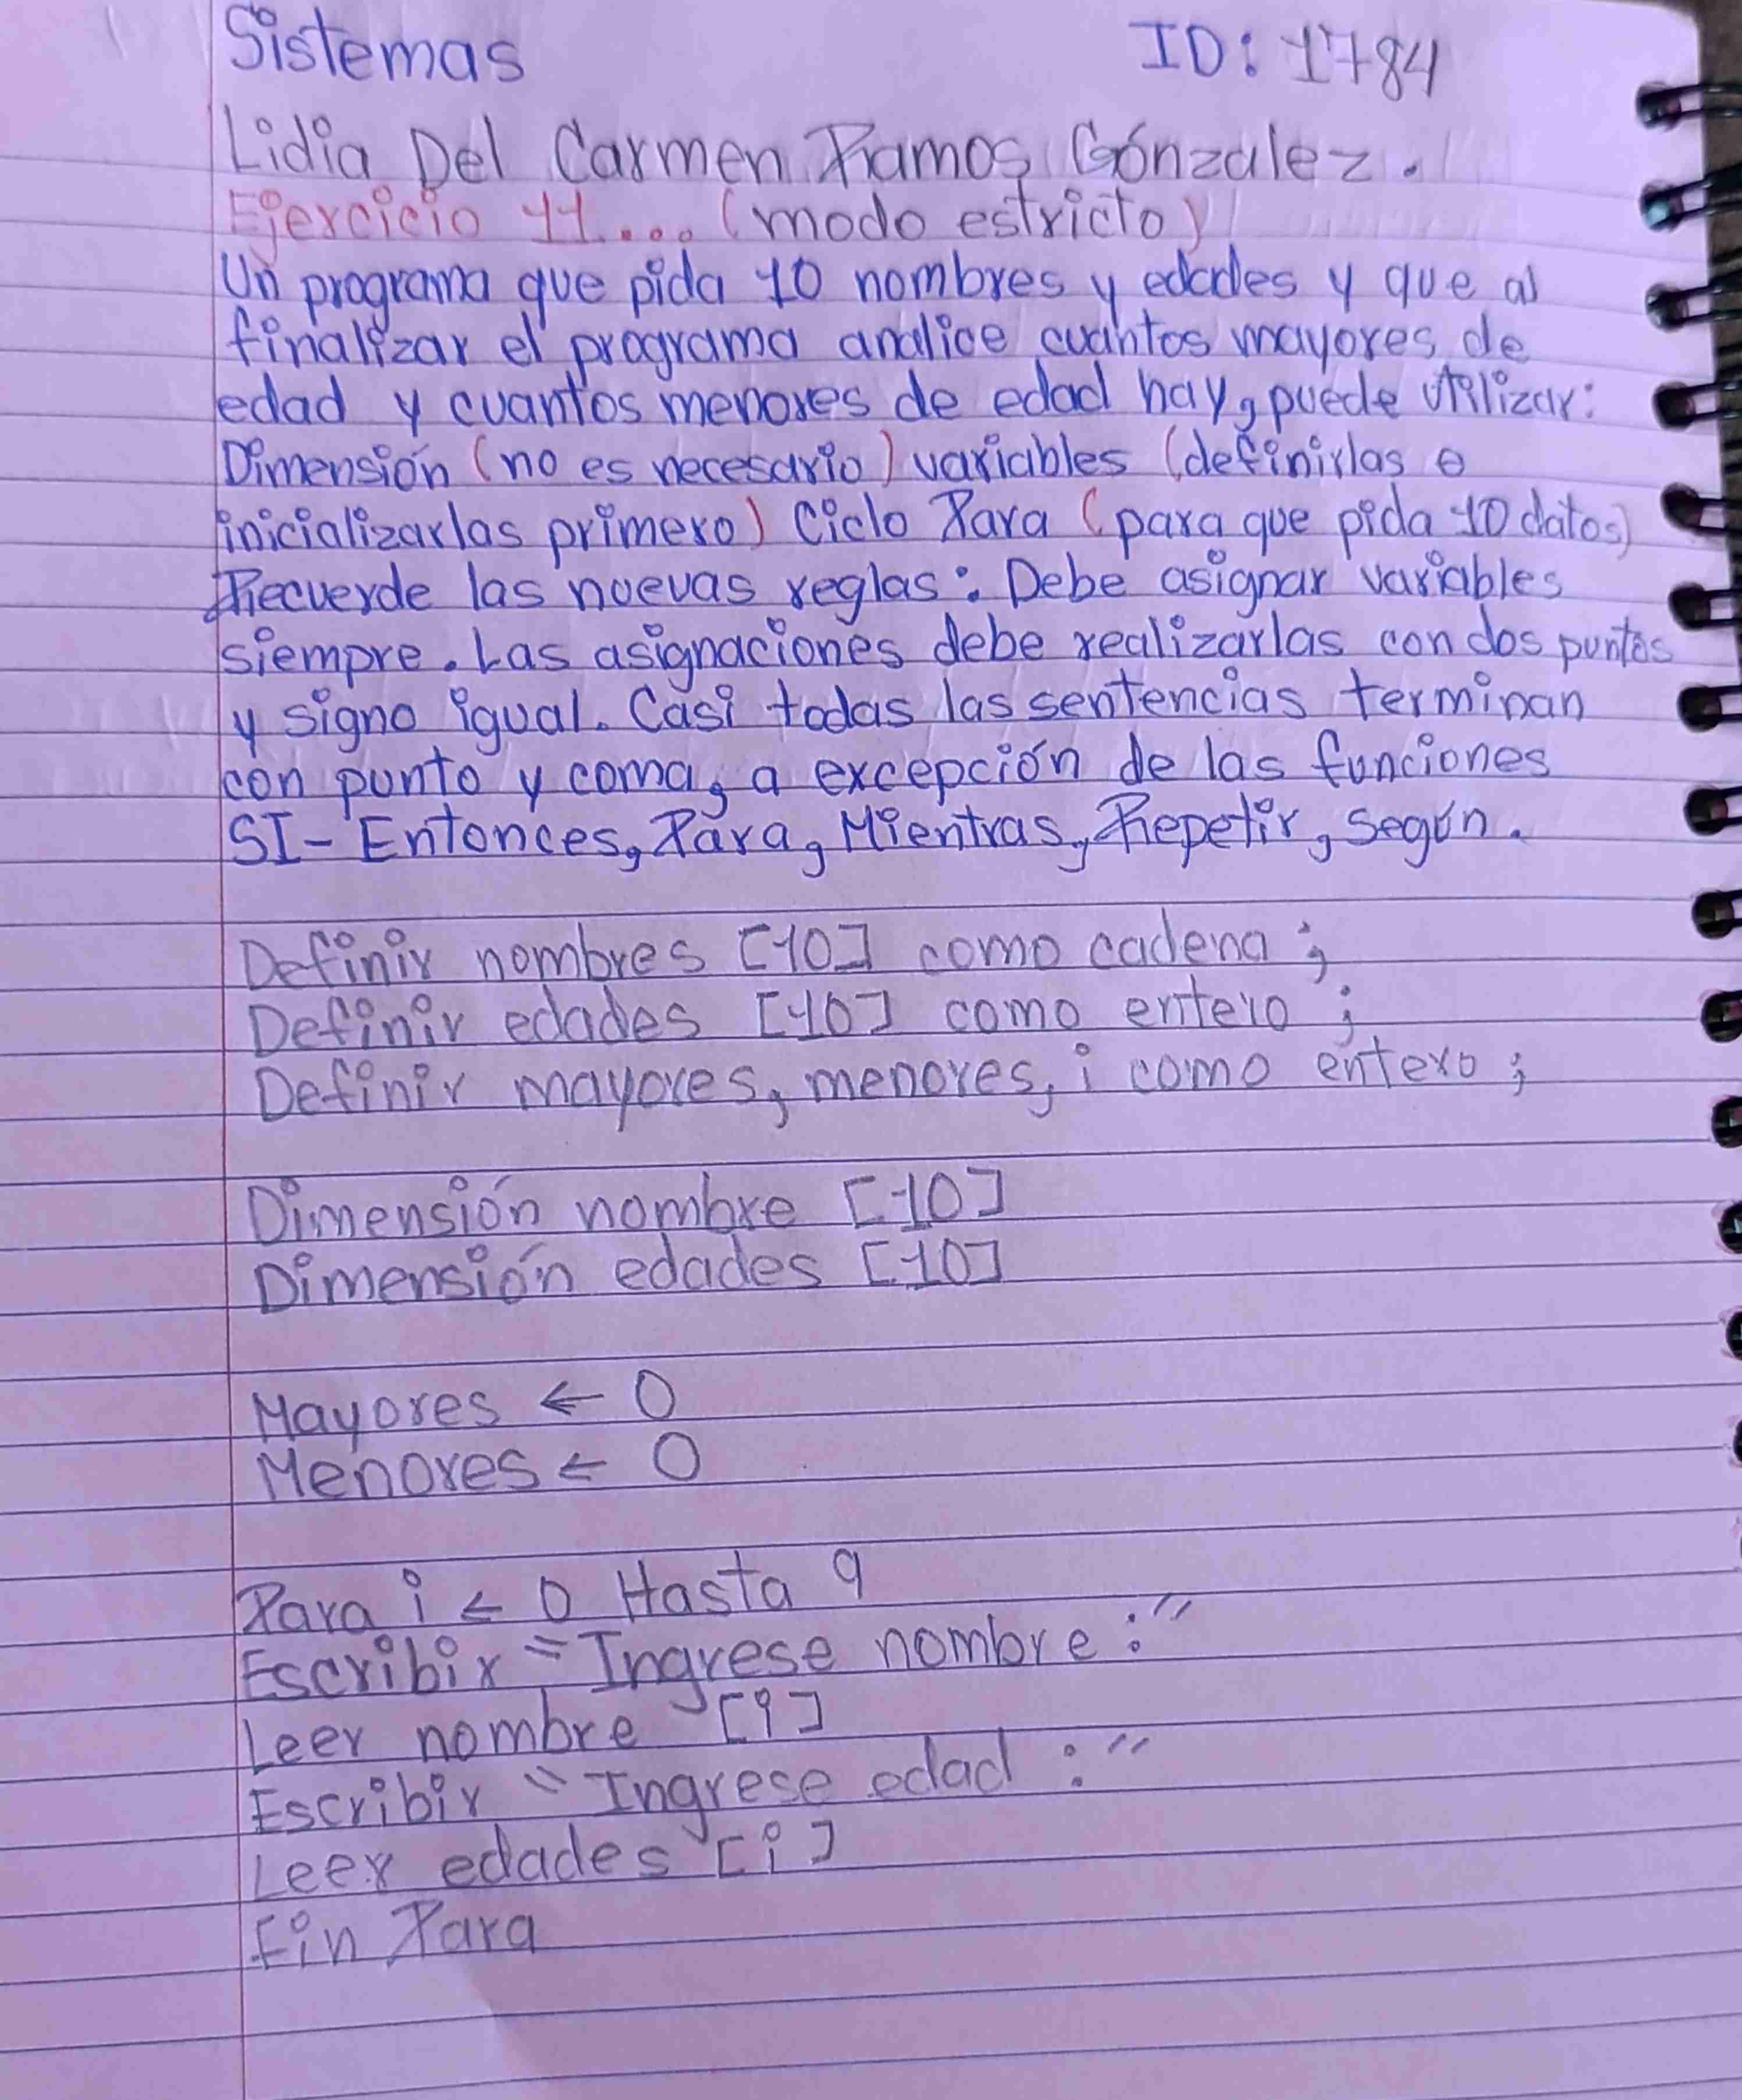 Sistemas ID: 1784
Lidia Del Carmen Ramos Gónzalez.
Ejercicio 11... (modo estricto)
Un programa que pida 10 nombres y edades y que al
finalizar el programa analice cuantos mayores de
edad y cuantos menores de edad hay, puede utilizar:
Dimensión (no es necesario) variables (definirlas o
inicializarlas primero) Ciclo Para (para que pida 10 datos)
Recuerde las nuevas reglas: Debe asignar variables
siempre. Las asignaciones debe realizarlas con dos puntos
y signo igual. Casi todas las sentencias terminan
con punto y coma, a excepción de las funciones
SI-Entonces, Para, Mientras, Repetir, según.
Definir nombres [10] como cadena ;
Definir edades [10] como entero ;
Definir mayores, menores, i como entero ;
Dimensión nombre [10]
Dimensión edades [10]
Mayores ← 0
Menores ← 0
Para i ← 0 Hasta 9
Escribir "Ingrese nombre :"
Leer nombre [i]
Escribir "Ingrese edad :"
Leer edades [i]
Fin Para